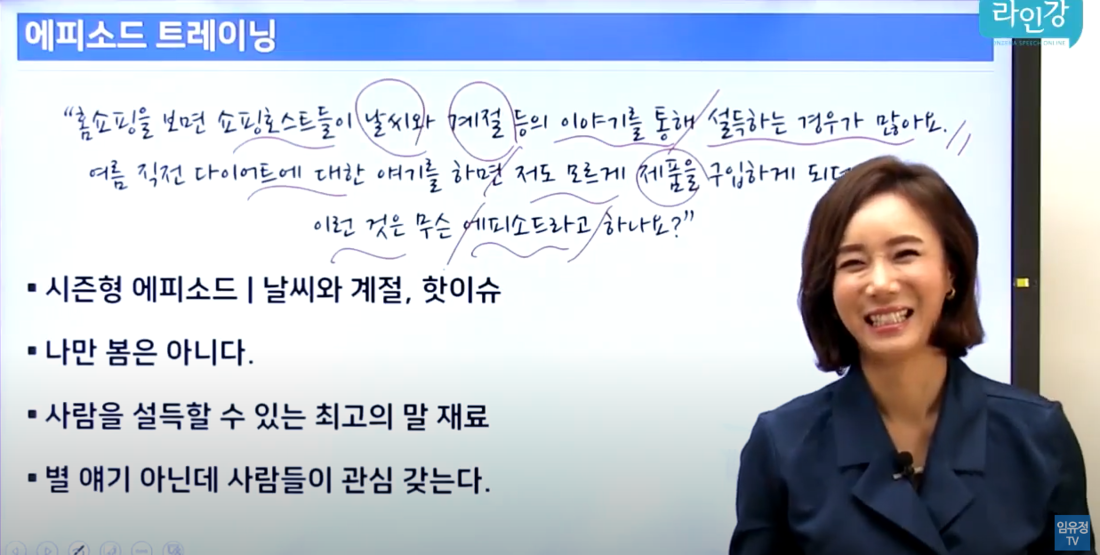 에피소드 트레이닝
라인강
ENZYLA SPEECH ONLINE
“홈쇼핑을 보면 쇼핑호스트들이 날씨와 계절 등의 이야기를 통해 설득하는 경우가 많아요.
여름 직전 다이어트에 대한 얘기를 하면 저도 모르게 제품을 구입하게 되더
이런 것은 무슨 에피소드라고 하나요?”
▪ 시즌형 에피소드 | 날씨와 계절, 핫이슈
▪ 나만 봄은 아니다.
▪ 사람을 설득할 수 있는 최고의 말 재료
▪ 별 얘기 아닌데 사람들이 관심 갖는다.
임유정
TV